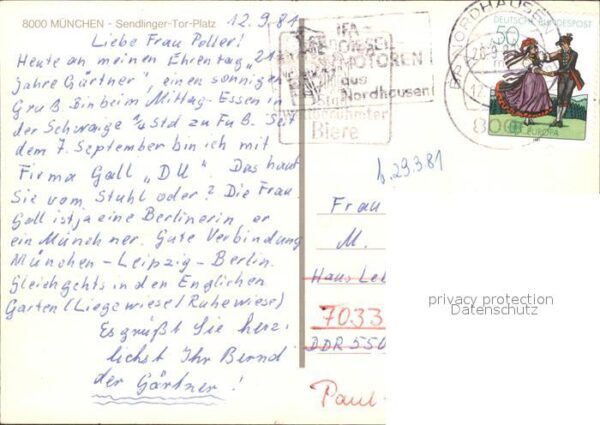 8000 MÜNCHEN - Sendlinger-Tor-Platz
12.9.81
Liebe Frau Poller!
Heute an meinen Ehrentag „21
Jahre Gärtner", einen sonnigen
Gruß. Bin beim Mittag-Essen in
der Schwaige 1/4 Std zu Fuß. Seit
dem 7. September bin ich mit
Firma Gall „DU". Das haut
Sie vom Stuhl oder? Die Frau
Gall ist ja eine Berlinerin, er
ein Münchner. Gute Verbindung
München-Leipzig-Berlin.
Gleich gehts in den Englichen
Garten (Liegewiese/Ruhewiese)
Es grüßt Sie herz-
lichst Ihr Bernd
der Gärtner!
IFA
DIESEL
MOTOREN
aus
Nordhausen
weltberühmter
Biere
NORDHAUSEN
DEUTSCHE BUNDESPOST
50
EUROPA
800
b.29.3.81
Frau
M.
Hans Lei
7033
DDR 550
Paul-
privacy protection
Datenschutz